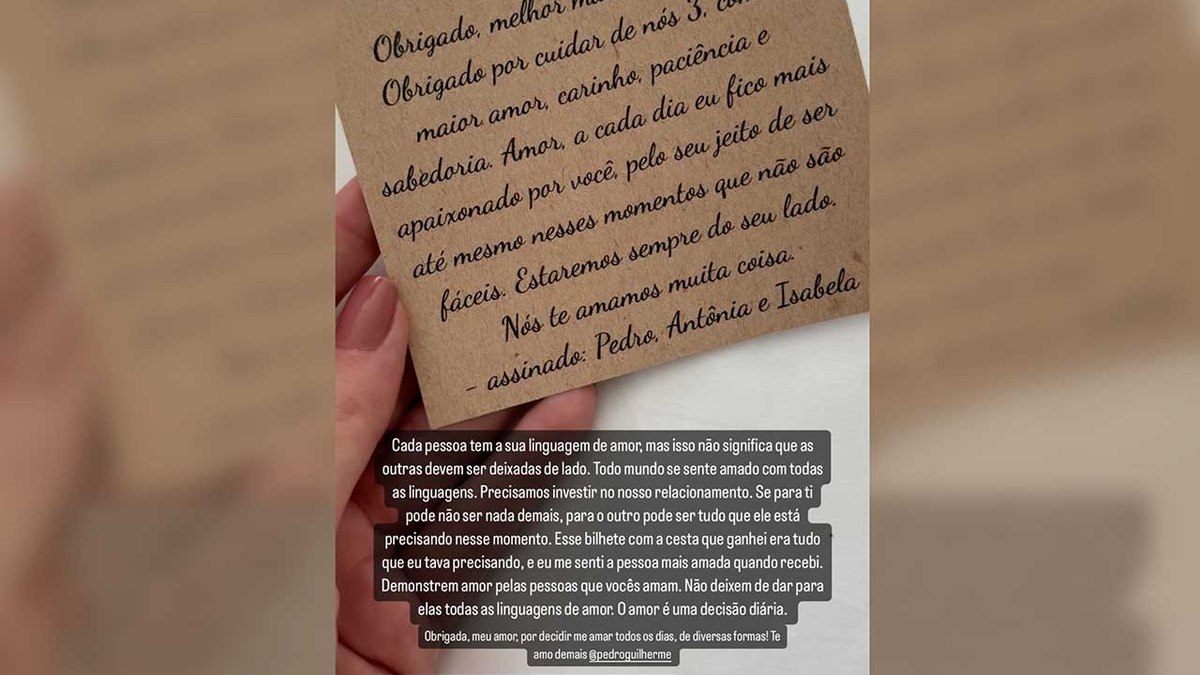 Obrigado, melhor
Obrigado por cuidar de nós 3, com
maior amor, carinho, paciência e
sabedoria. Amor, a cada dia eu fico mais
apaixonado por você, pelo seu jeito de ser
até mesmo nesses momentos que não são
fáceis. Estaremos sempre do seu lado.
Nós te amamos muita coisa.
- assinado: Pedro, Antônia e Isabela
Cada pessoa tem a sua linguagem de amor, mas isso não significa que as
outras devem ser deixadas de lado. Todo mundo se sente amado com todas
as linguagens. Precisamos investir no nosso relacionamento. Se para ti
pode não ser nada demais, para o outro pode ser tudo que ele está
precisando nesse momento. Esse bilhete com a cesta que ganhei era tudo
que eu tava precisando, e eu me senti a pessoa mais amada quando recebi.
Demonstrem amor pelas pessoas que vocês amam. Não deixem de dar para
elas todas as linguagens de amor. O amor é uma decisão diária.
Obrigada, meu amor, por decidir me amar todos os dias, de diversas formas! Te
amo demais @pedroguilherme